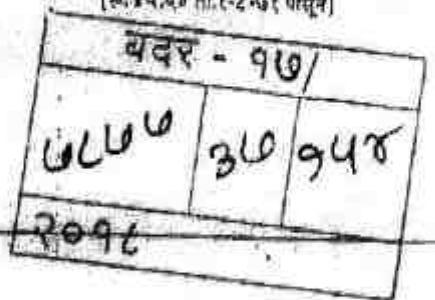 बदर - १७/
७८७७ ३७ १५४
२०१८